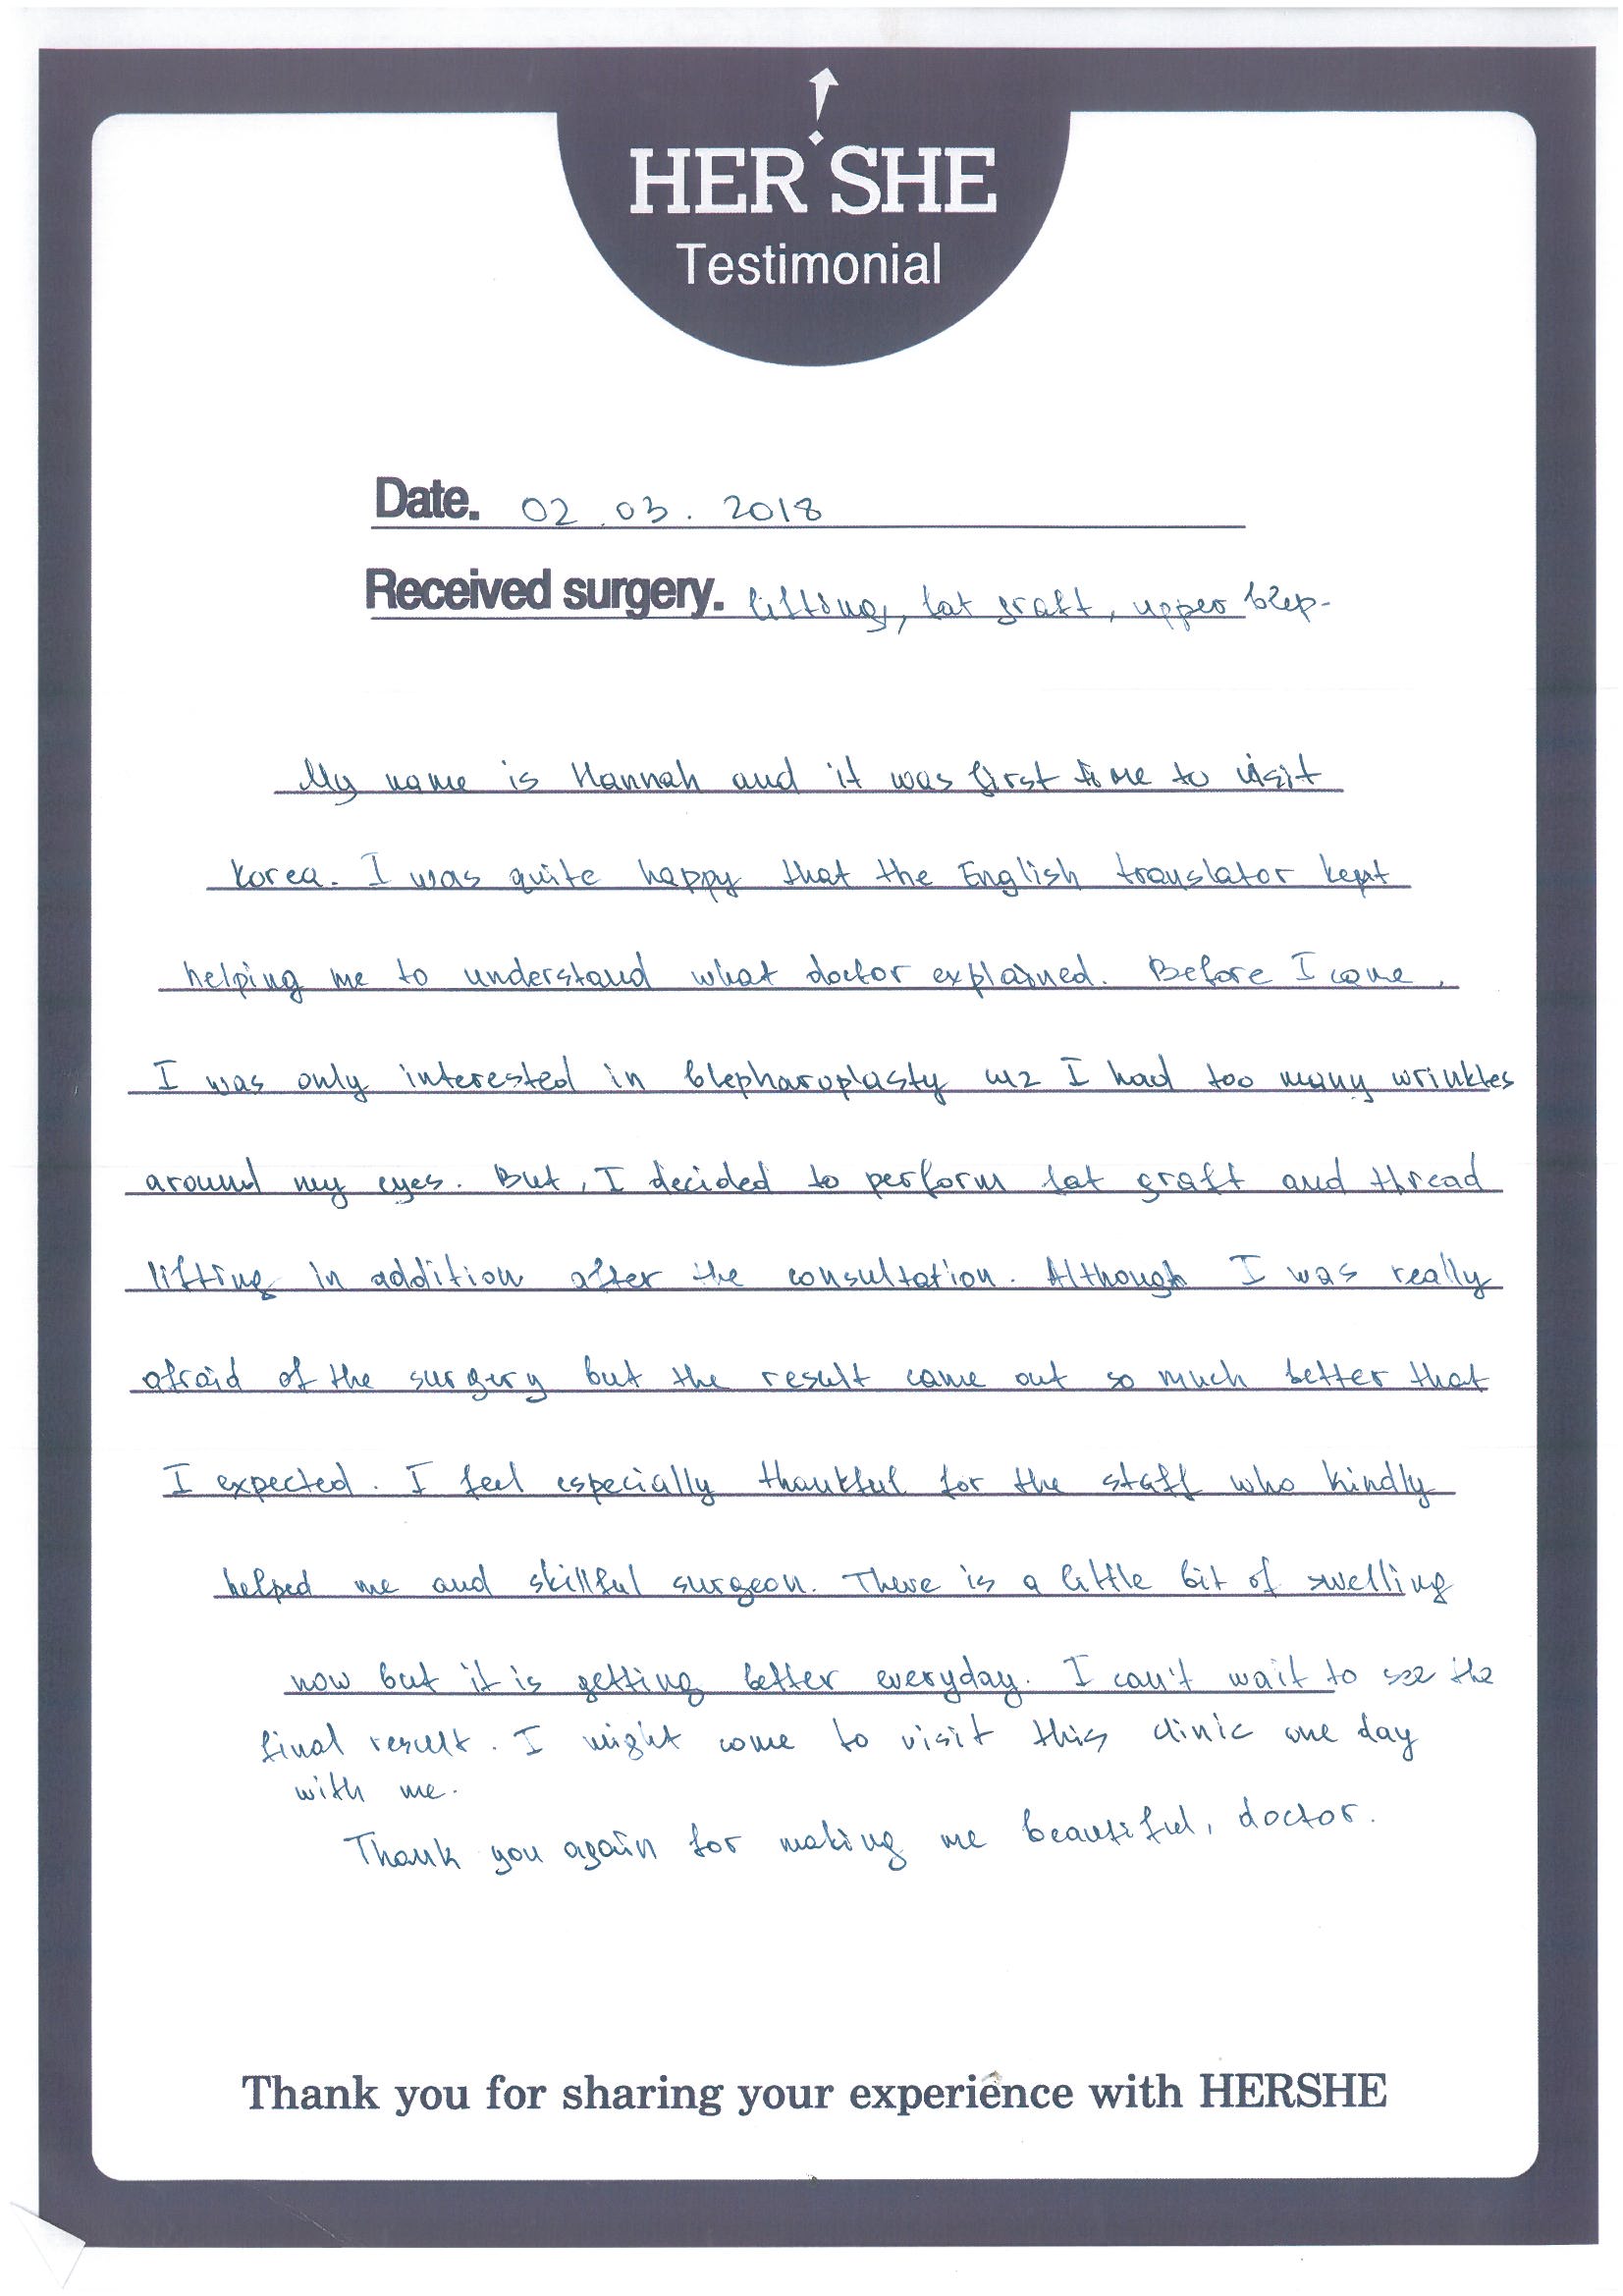 HER SHE
Testimonial
Date. 02.03.2018
Received surgery. lifting, fat graft, upper blep-
My name is Hannah and it was first time to visit
Korea. I was quite happy that the English translator kept
helping me to understand what doctor explained. Before I come,
I was only interested in blepharoplasty cuz I had too many wrinkles
around my eyes. But, I decided to perform fat graft and thread
lifting in addition after the consultation. Although I was really
afraid of the surgery but the result came out so much better that
I expected. I feel especially thankful for the staff who kindly
helped me and skillful surgeon. There is a little bit of swelling
now but it is getting better everyday. I can't wait to see the
final result. I might come to visit this clinic one day
with me.
Thank you again for making me beautiful, doctor.
Thank you for sharing your experience with HERSHE